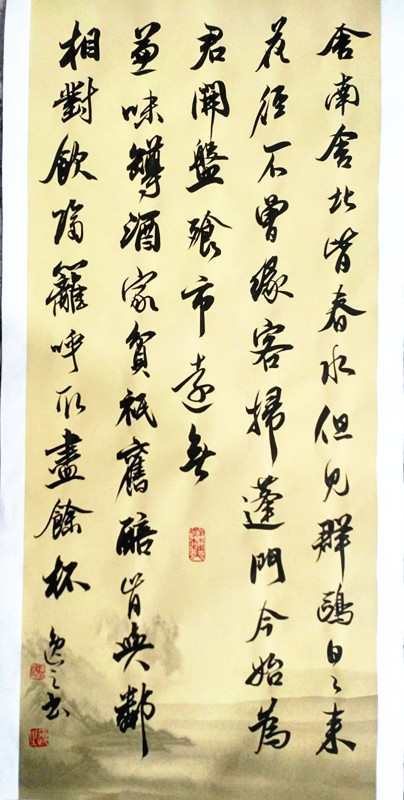 舍南舍北皆春水但見群鷗日々来
花徑不曾緣客掃蓬門今始為
君開盤飱市遠無
兼味罇酒家貧衹舊醅肯與鄰
相對飲隔籬呼取盡餘杯
逸之书